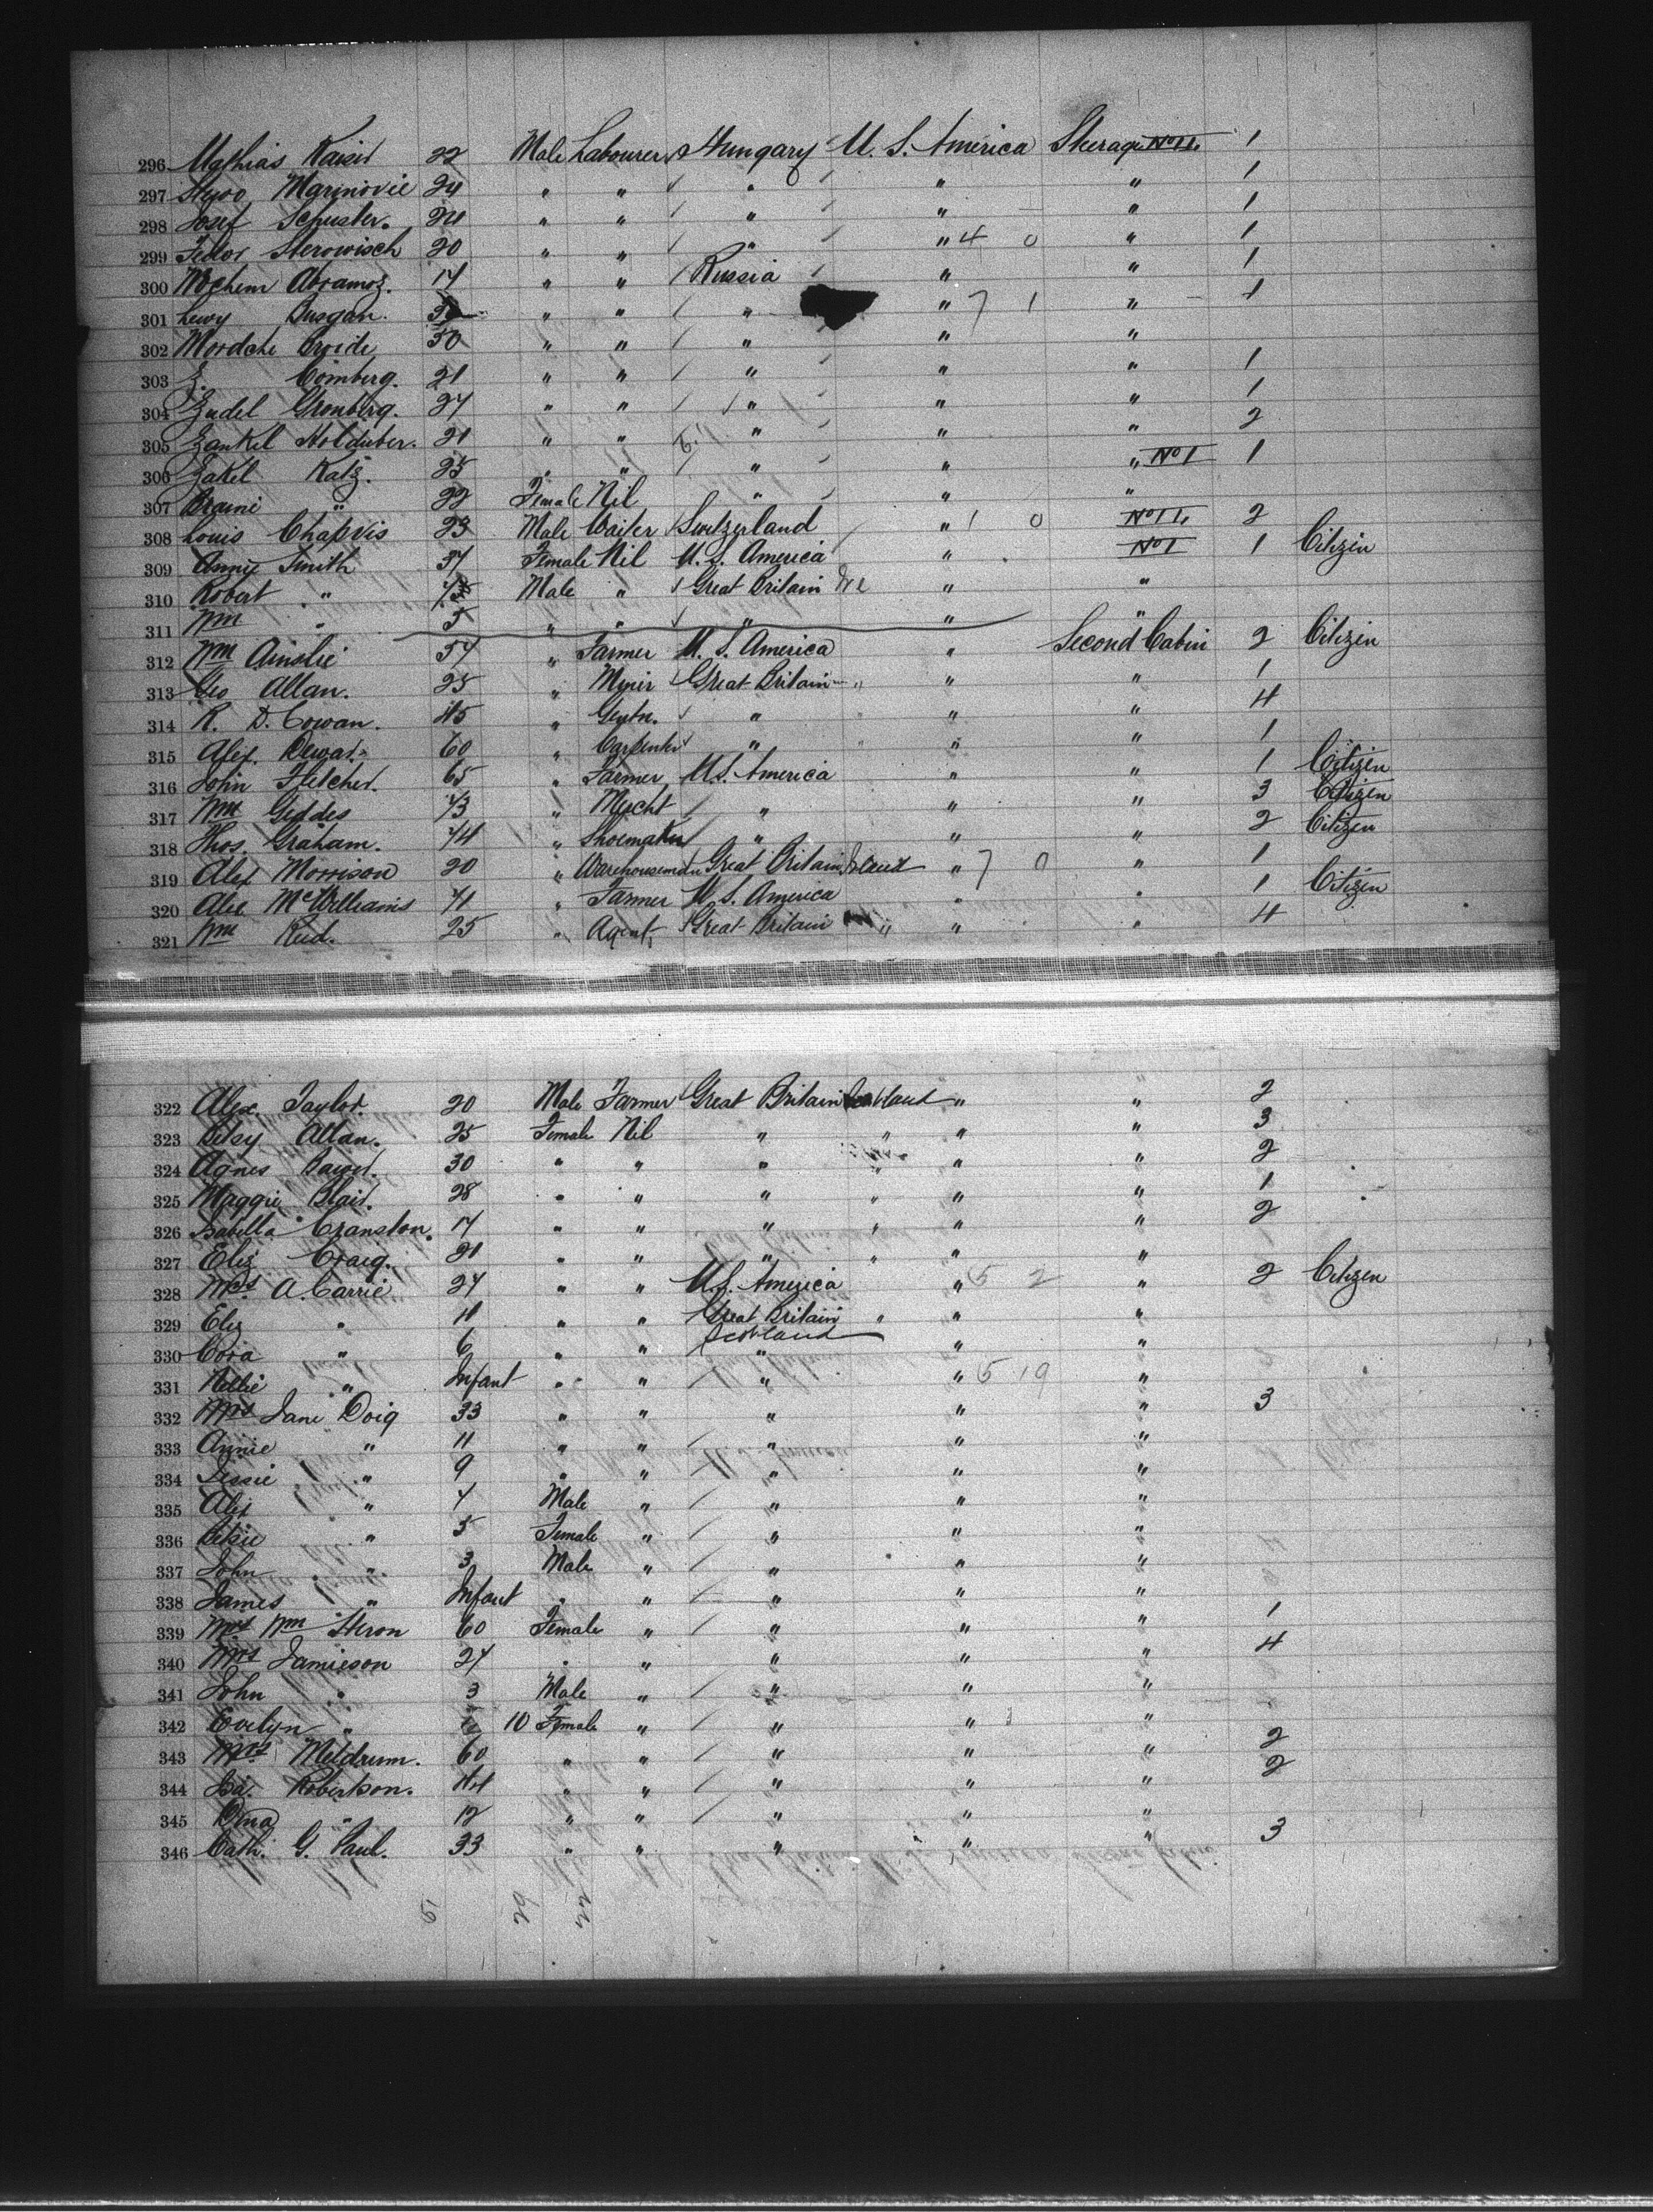 296 Mathias Kaiser 22 Male Labourer Hungary U. S. America Steerage No 11. 1
297 Marinovic 24 " " " " " 1
298 Josef Schuster. 24 " " " " " 1
299 Fedor Sterowisch 20 " " " " 4 0 " 1
300 Abramoz. 17 " " Russia " " 1
301 Lewy Dusgan. " " " " 7 1 " 1
302 Mordche Croide 50 " " " " "
303 Z. Comberg. 21 " " " " " 1
304 Zudel Gronberg. 27 " " " " " 1
305 Zankel Holduber. 21 " " " " " 2
306 Zakel Katz. 25 " " " " " No 1 1
307 Braine " 22 Female Nil " " "
308 Louis Chapvis 23 Male Waiter Switzerland " 1 0 No 11. 2
309 Annie Smith 37 Female Nil U. S. America " No 1 1 Citizen
310 Robert " Male " Great Britain " "
311 Wm " 5 " " " " "
312 Wm Ainslie 57 " Farmer U. S. America " Second Cabin 2 Citizen
313 Geo Allan. 25 " Miner Great Britain " " " 1
314 R. D. Cowan. 45 " Gentn. " " " 4
315 Alex. Dewar. 60 " Carpenter " " " 1
316 John Fletcher. 65 " Farmer U.S. America " " 1 Citizen
317 Wm Geddes 43 " Mercht " " " 3 Citizen
318 Thos. Graham. 44 " Shoemaker " " " 2 Citizen
319 Alex Morrison 20 " Warehouseman Great Britain " 7 0 " 1
320 Alex McWilliams 41 " Farmer U. S. America " " 1 Citizen
321 Wm Reid. 25 " Agent Great Britain " " " 4
322 Alex. Taylor. 20 Male Farmer Great Britain Scotland " " 2
323 Betsy Allan. 25 Female Nil " " " " 3
324 Agnes Bawer. 30 " " " " " " 2
325 Maggie Blair. 28 " " " " " " 1
326 Isabella Cranston. 17 " " " " " " 2
327 Eliz Craig. 21 " " " " " "
328 Mrs A. Carrie 27 " " U.S. America " 5 2 " 2 Citizen
329 Eliz " 11 " " Great Britain " " "
Scotland
330 Cora " 6 " " " " "
331 Nellie " Infant " " " " 5 19 "
332 Mrs Jane Doig 33 " " " " " 3
333 Annie " 11 " " " " "
334 Jessie " 9 " " " " "
335 Alex " 7 Male " " " "
336 Betsie " 5 Female " " " "
337 John " 3 Male " " " "
338 James " Infant " " " " "
339 Mrs Wm Heron 60 Female " " " " 1
340 Mrs Jamieson 27 " " " " " 4
341 John " 3 Male " " " "
342 Evelyn " 10 Female " " " "
343 Mrs Meldrum. 60 " " " " " 2
344 Isa. Robertson. 44 " " " " " 2
345 " 12 " " " " "
346 Cath. G. Paul. 33 " " " " " 3